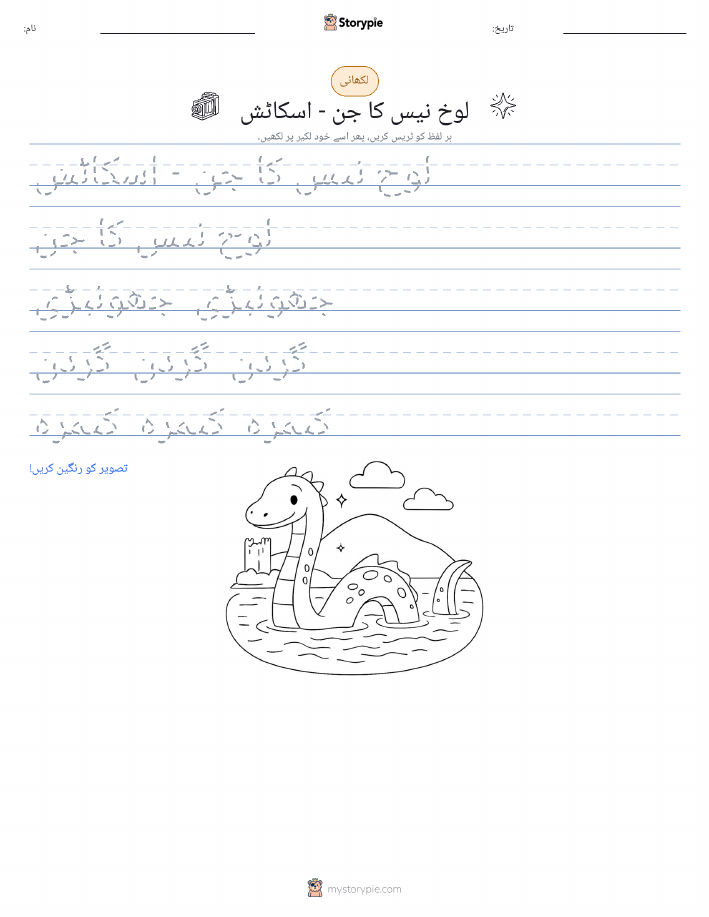 Storypie
نام:
تاریخ:
لکھائی
لوخ نیس کا جن - اسکاٹش
ہر لفظ کو ٹریس کریں، پھر اسے خود لکیر پر لکھیں۔
لوخ نیس کا جن - اسکاٹش
لوخ نیس کا جن
جھونپڑی جھونپڑی
گرلن گرلن گرلن
کیمرہ کیمرہ کیمرہ
تصویر کو رنگین کریں!
mystorypie.com